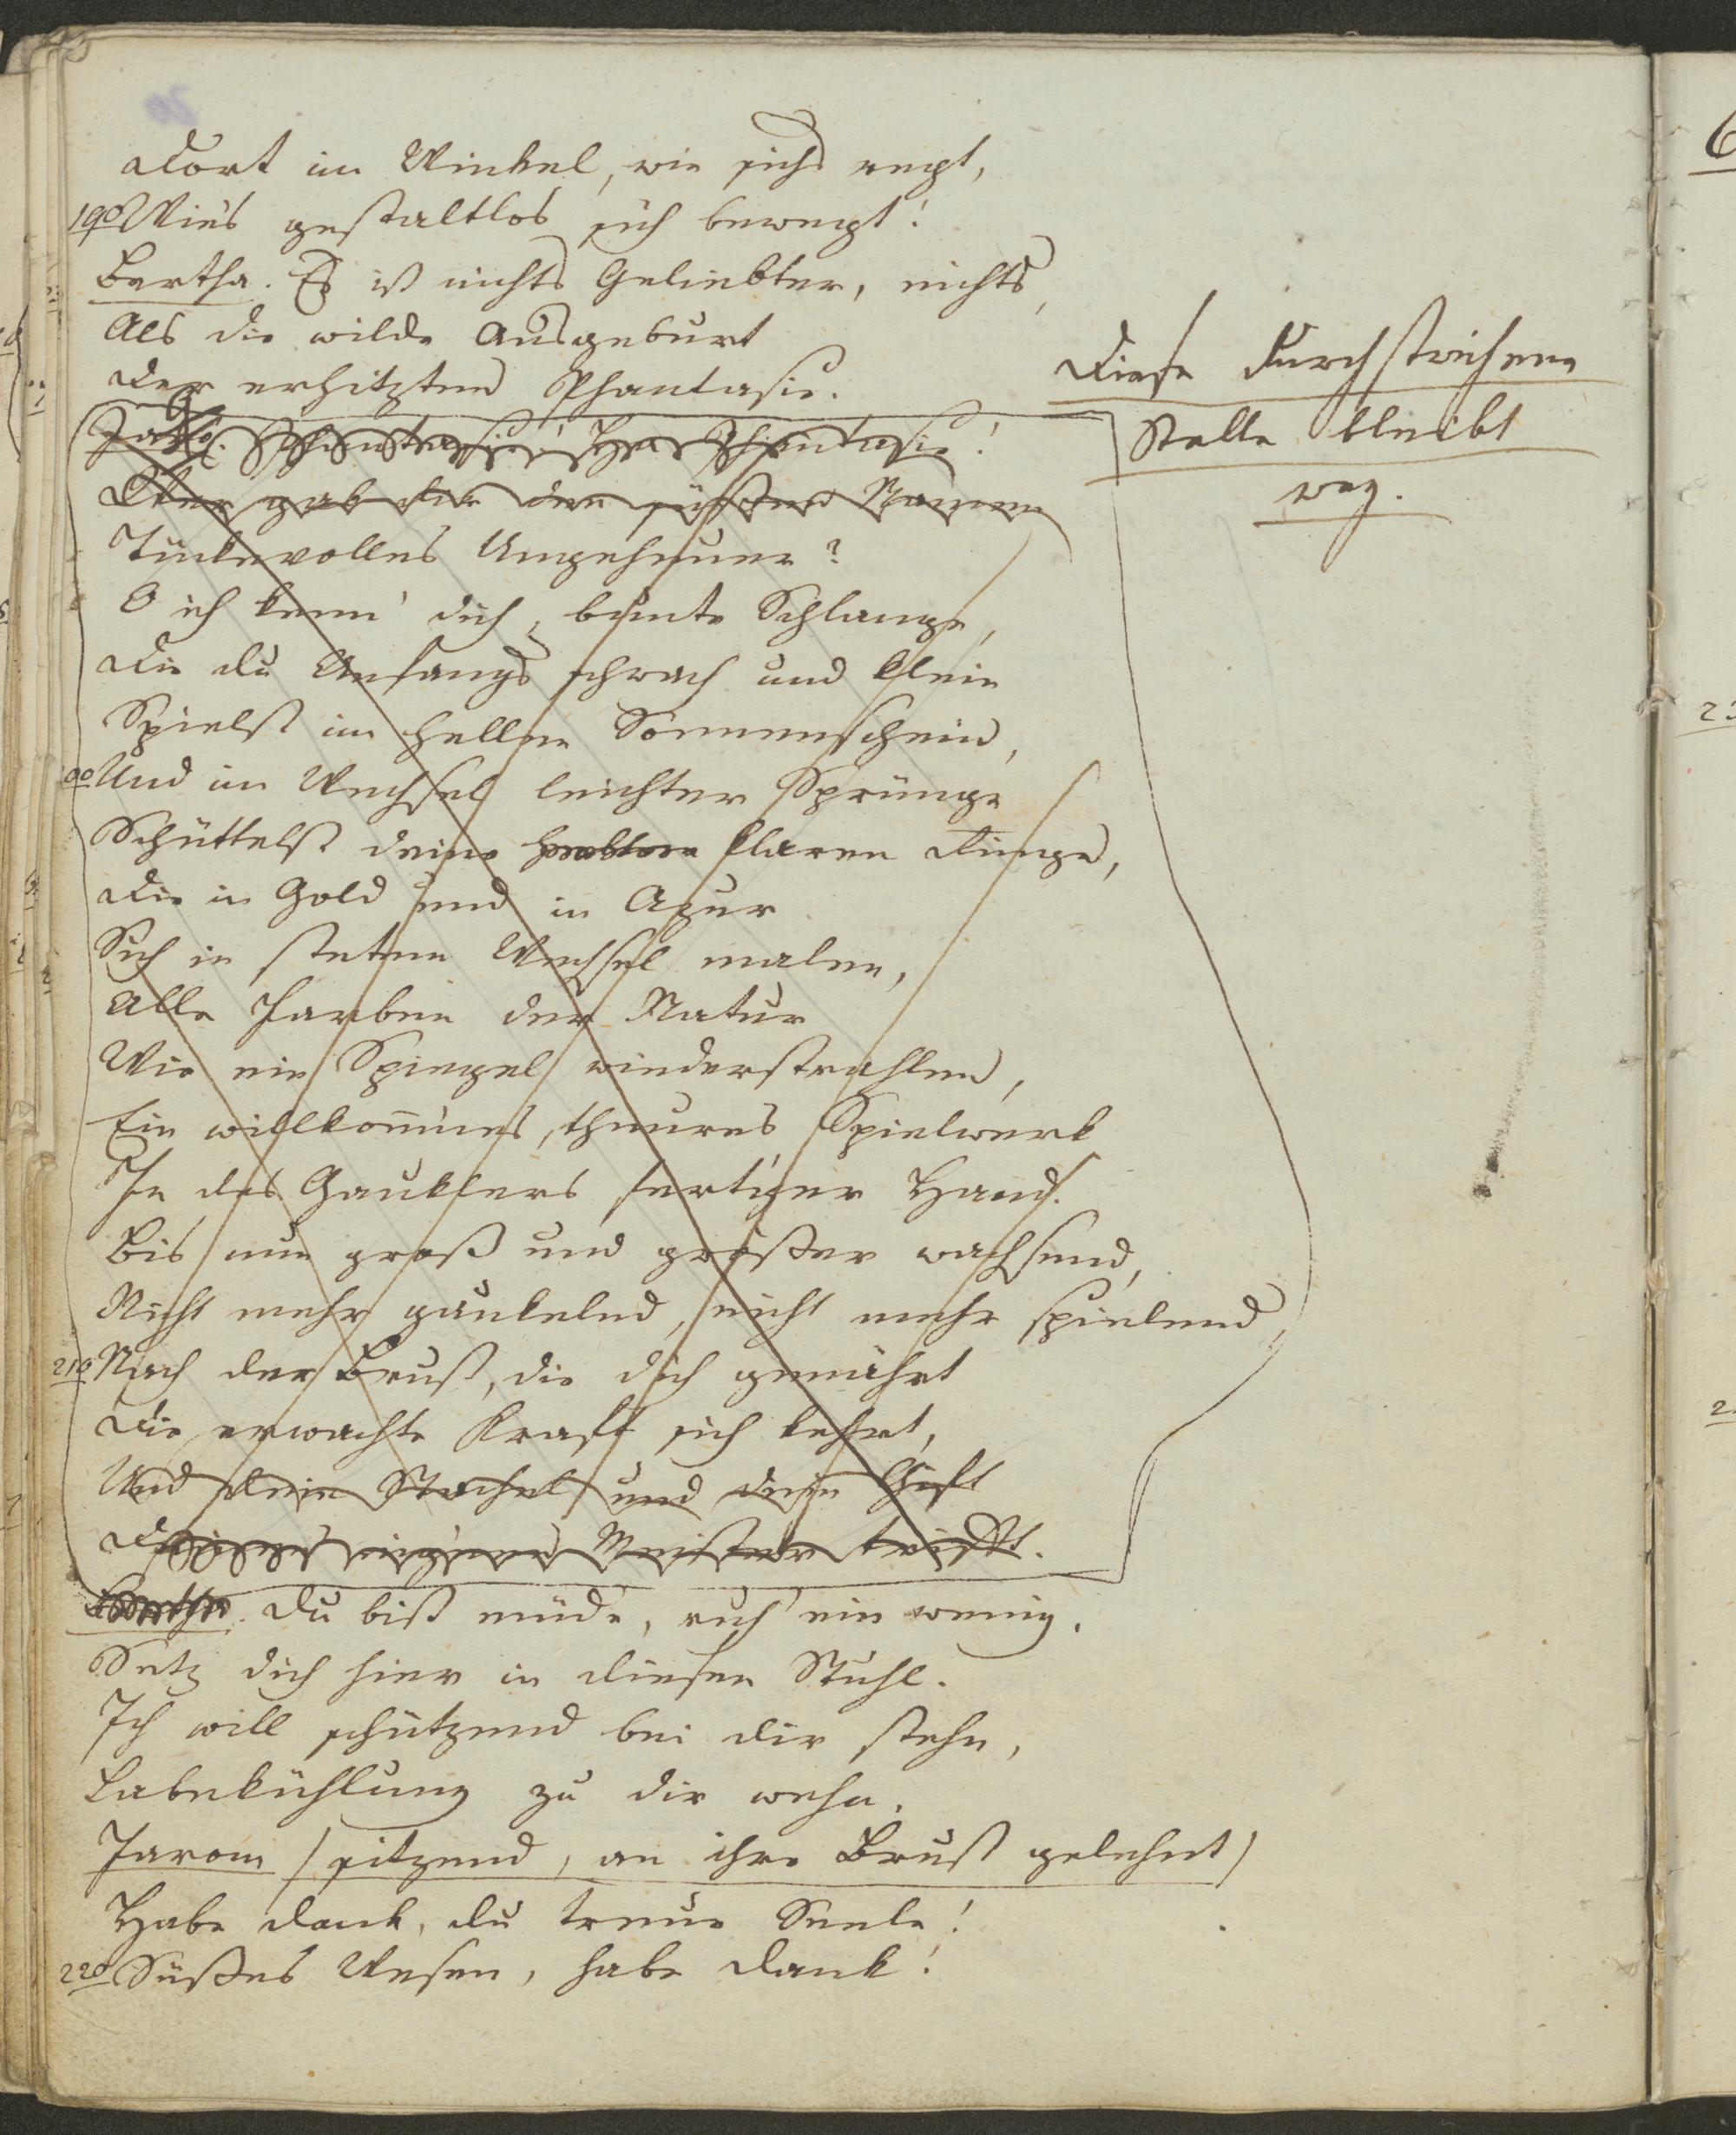 Dort im Winkel, wie sichs regt,
190 Wies gestaltlos sich bewegt!
Bertha. Es ist nichts Geliebter, nichts,
Als die wilde Ausgeburt
Der erhitzten Phantasie.
Jaro. Phantasie! Ha Phantasie!
Wer gab dir den süßen Namen
Tückevolles Ungeheuer?
O ich kenn' dich, bunte Schlange,
Die du Anfangs schwach und klein
Spielst im hellen Sonnenschein,
00 Und im Wechsel leichter Sprünge
Schüttelst deine klaren Ringe,
Die in Gold und in Azur
Sich in stetem Wechsel malen,
Alle Farben der Natur
Wie ein Spiegel wiederstrahlen,
Ein willkommnes, theures Spielwerk
In des Gauklers fertiger Hand.
Bis nun groß und größer wachsend,
Nicht mehr gaukelnd, nicht mehr spielend,
210 Nach der Brust, die dich genährt
Die erwachte Kraft sich kehrt,
Und dein Stachel und dein Gift
Deines eignen Meister trifft.
Bertha. Du bist müde, ruh' ein wenig.
Setz dich hier in diesen Stuhl.
Ich will schützend bei dir stehn,
Labekühlung zu dir wehn.
Jarom /sitzend, an ihre Brust gelehnt/
Habe Dank, du treue Seele!
220 Süßes Wesen, habe Dank!
Diese durchstrichene
Stelle bleibt
weg.
6
23
2